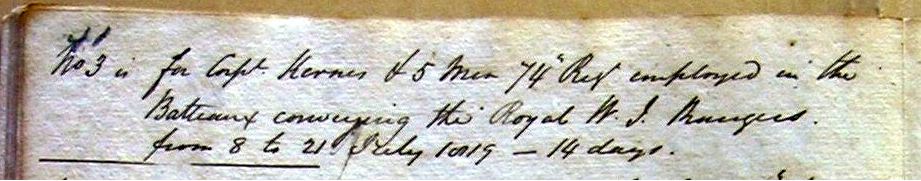 No 3 is for Corpl. Kernes & 5 Men 74" Regt employed in the
Batteaux conveying the Royal W. I. Rangers.
from 8 to 21 July 1819 – 14 days.